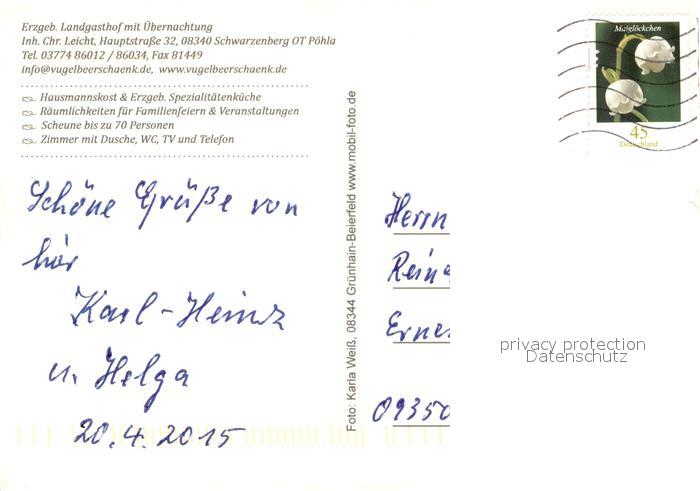 Erzgeb. Landgasthof mit Übernachtung
Inh. Chr. Leicht, Hauptstraße 32, 08340 Schwarzenberg OT Pöhla
Tel. 03774 86012 / 86034, Fax 81449
info@vugelbeerschaenk.de, www.vugelbeerschaenk.de
Hausmannskost & Erzgeb. Spezialitätenküche
Räumlichkeiten für Familienfeiern & Veranstaltungen
Scheune bis zu 70 Personen
Zimmer mit Dusche, WC, TV und Telefon
Schöne Grüße von
hier
Karl-Heinz
u. Helga
20.4.2015
Foto: Karla Weiß, 08344 Grünhain-Beierfeld www.mobil-foto.de
Maiglöckchen
45
Deutschland
Herrn
09350
privacy protection
Datenschutz